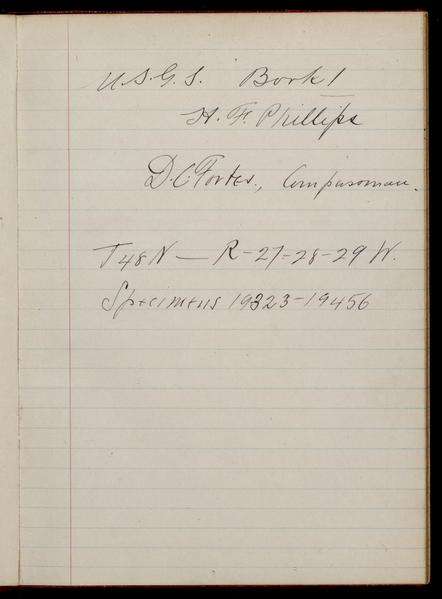 U.S.G.S. Book 1
H. F. Phillips
D. C. Porter., Compassman.
T 48 N — R - 27 - 28 - 29 W.
Specimens 19323 - 19456